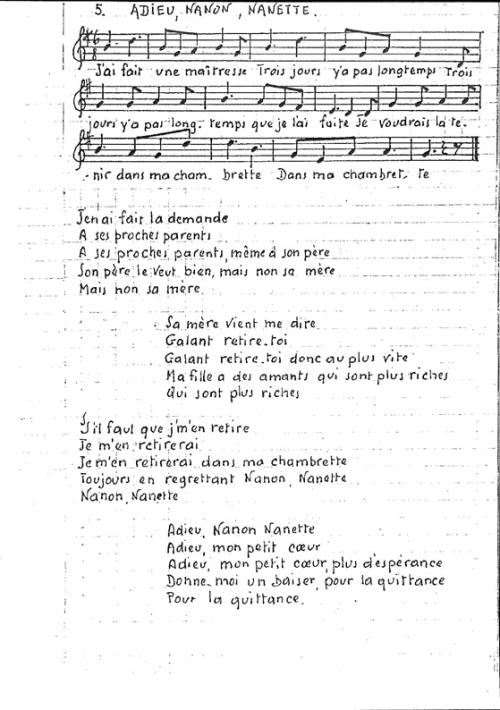 5. ADIEU, NANON, NANETTE.
J'ai fait une maîtresse Trois jours y'a pas longtemps Trois
jours y'a pas long- temps que je lai faite Je voudrais la te-
-nir dans ma cham- brette Dans ma chambret- te
J'en ai fait la demande
A ses proches parents
A ses proches parents, même à son père
Son père le veut bien, mais non sa mère
Mais non sa mère.
Sa mère vient me dire
Galant retire-toi
Galant retire-toi donc au plus vite
Ma fille a des amants qui sont plus riches
Qui sont plus riches
S'il faut que j'm'en retire
Je m'en retirerai
Je m'en retirerai dans ma chambrette
Toujours en regrettant Nanon, Nanette
Nanon, Nanette
Adieu, Nanon Nanette
Adieu, mon petit cœur
Adieu, mon petit cœur, plus d'espérance
Donne-moi un baiser, pour la quittance
Pour la quittance.